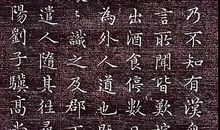 乃不知有漢
言所聞皆歎
出酒食停數
為外人道也
〻識之及郡下
遣人隨其往
陽劉子驥高尚